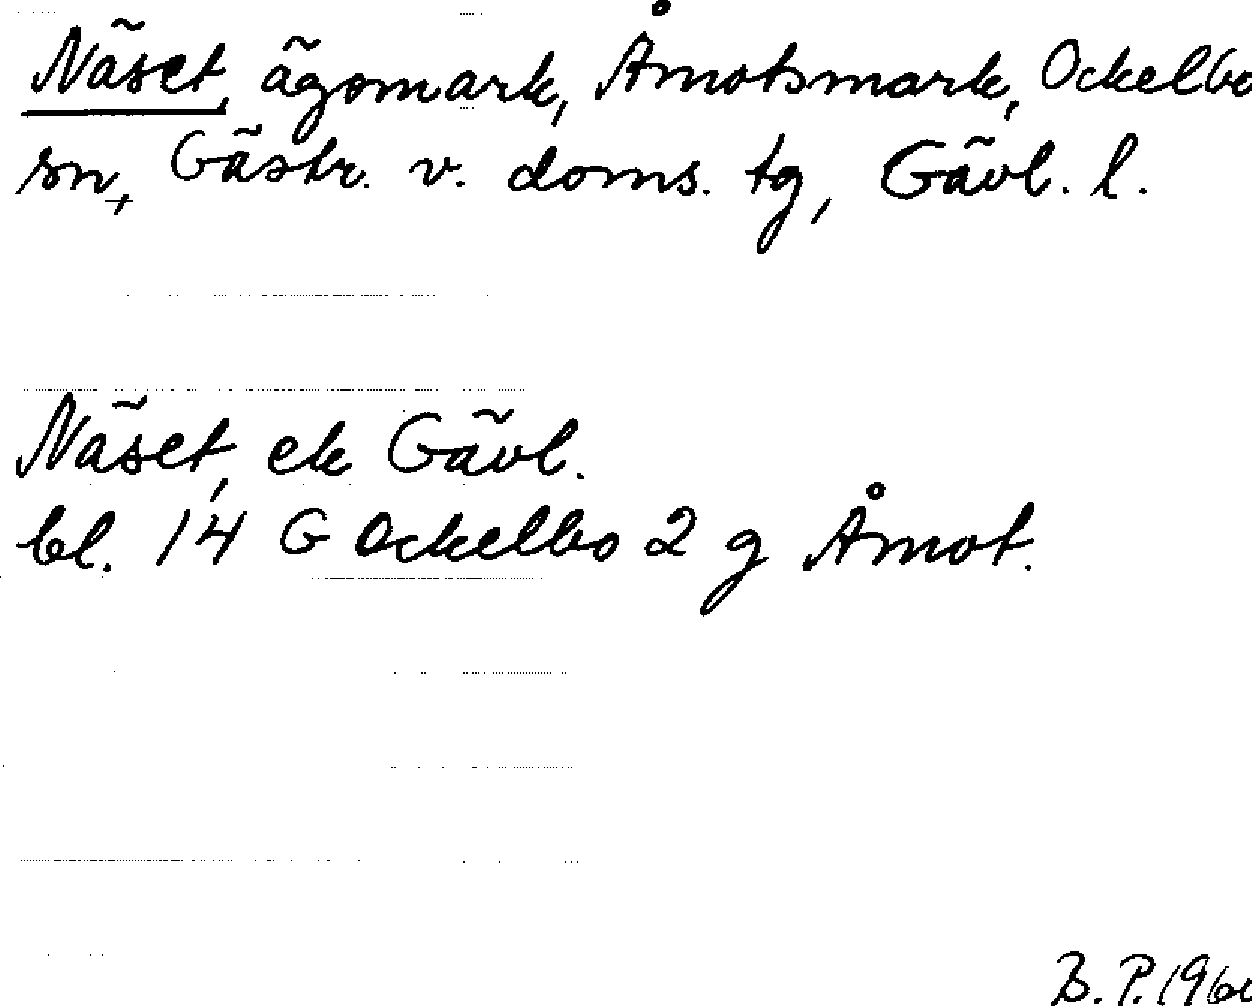 Näset, ägomark, Åmotsmark, Ockelbo
sn, Gästr. v. doms. tg, Gävl. l.
Näset, ek Gävl.
bl. 14 G Ockelbo 2 g Åmot.
B. P. 1960